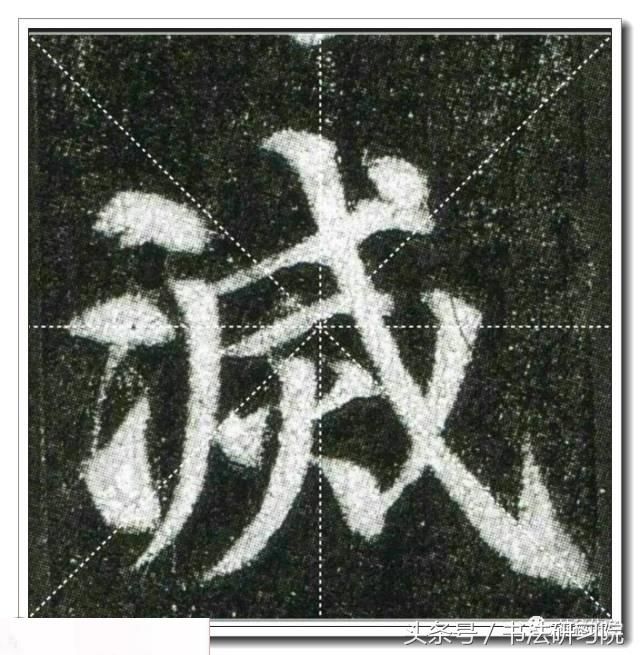 滅
头条号 / 书法研习院